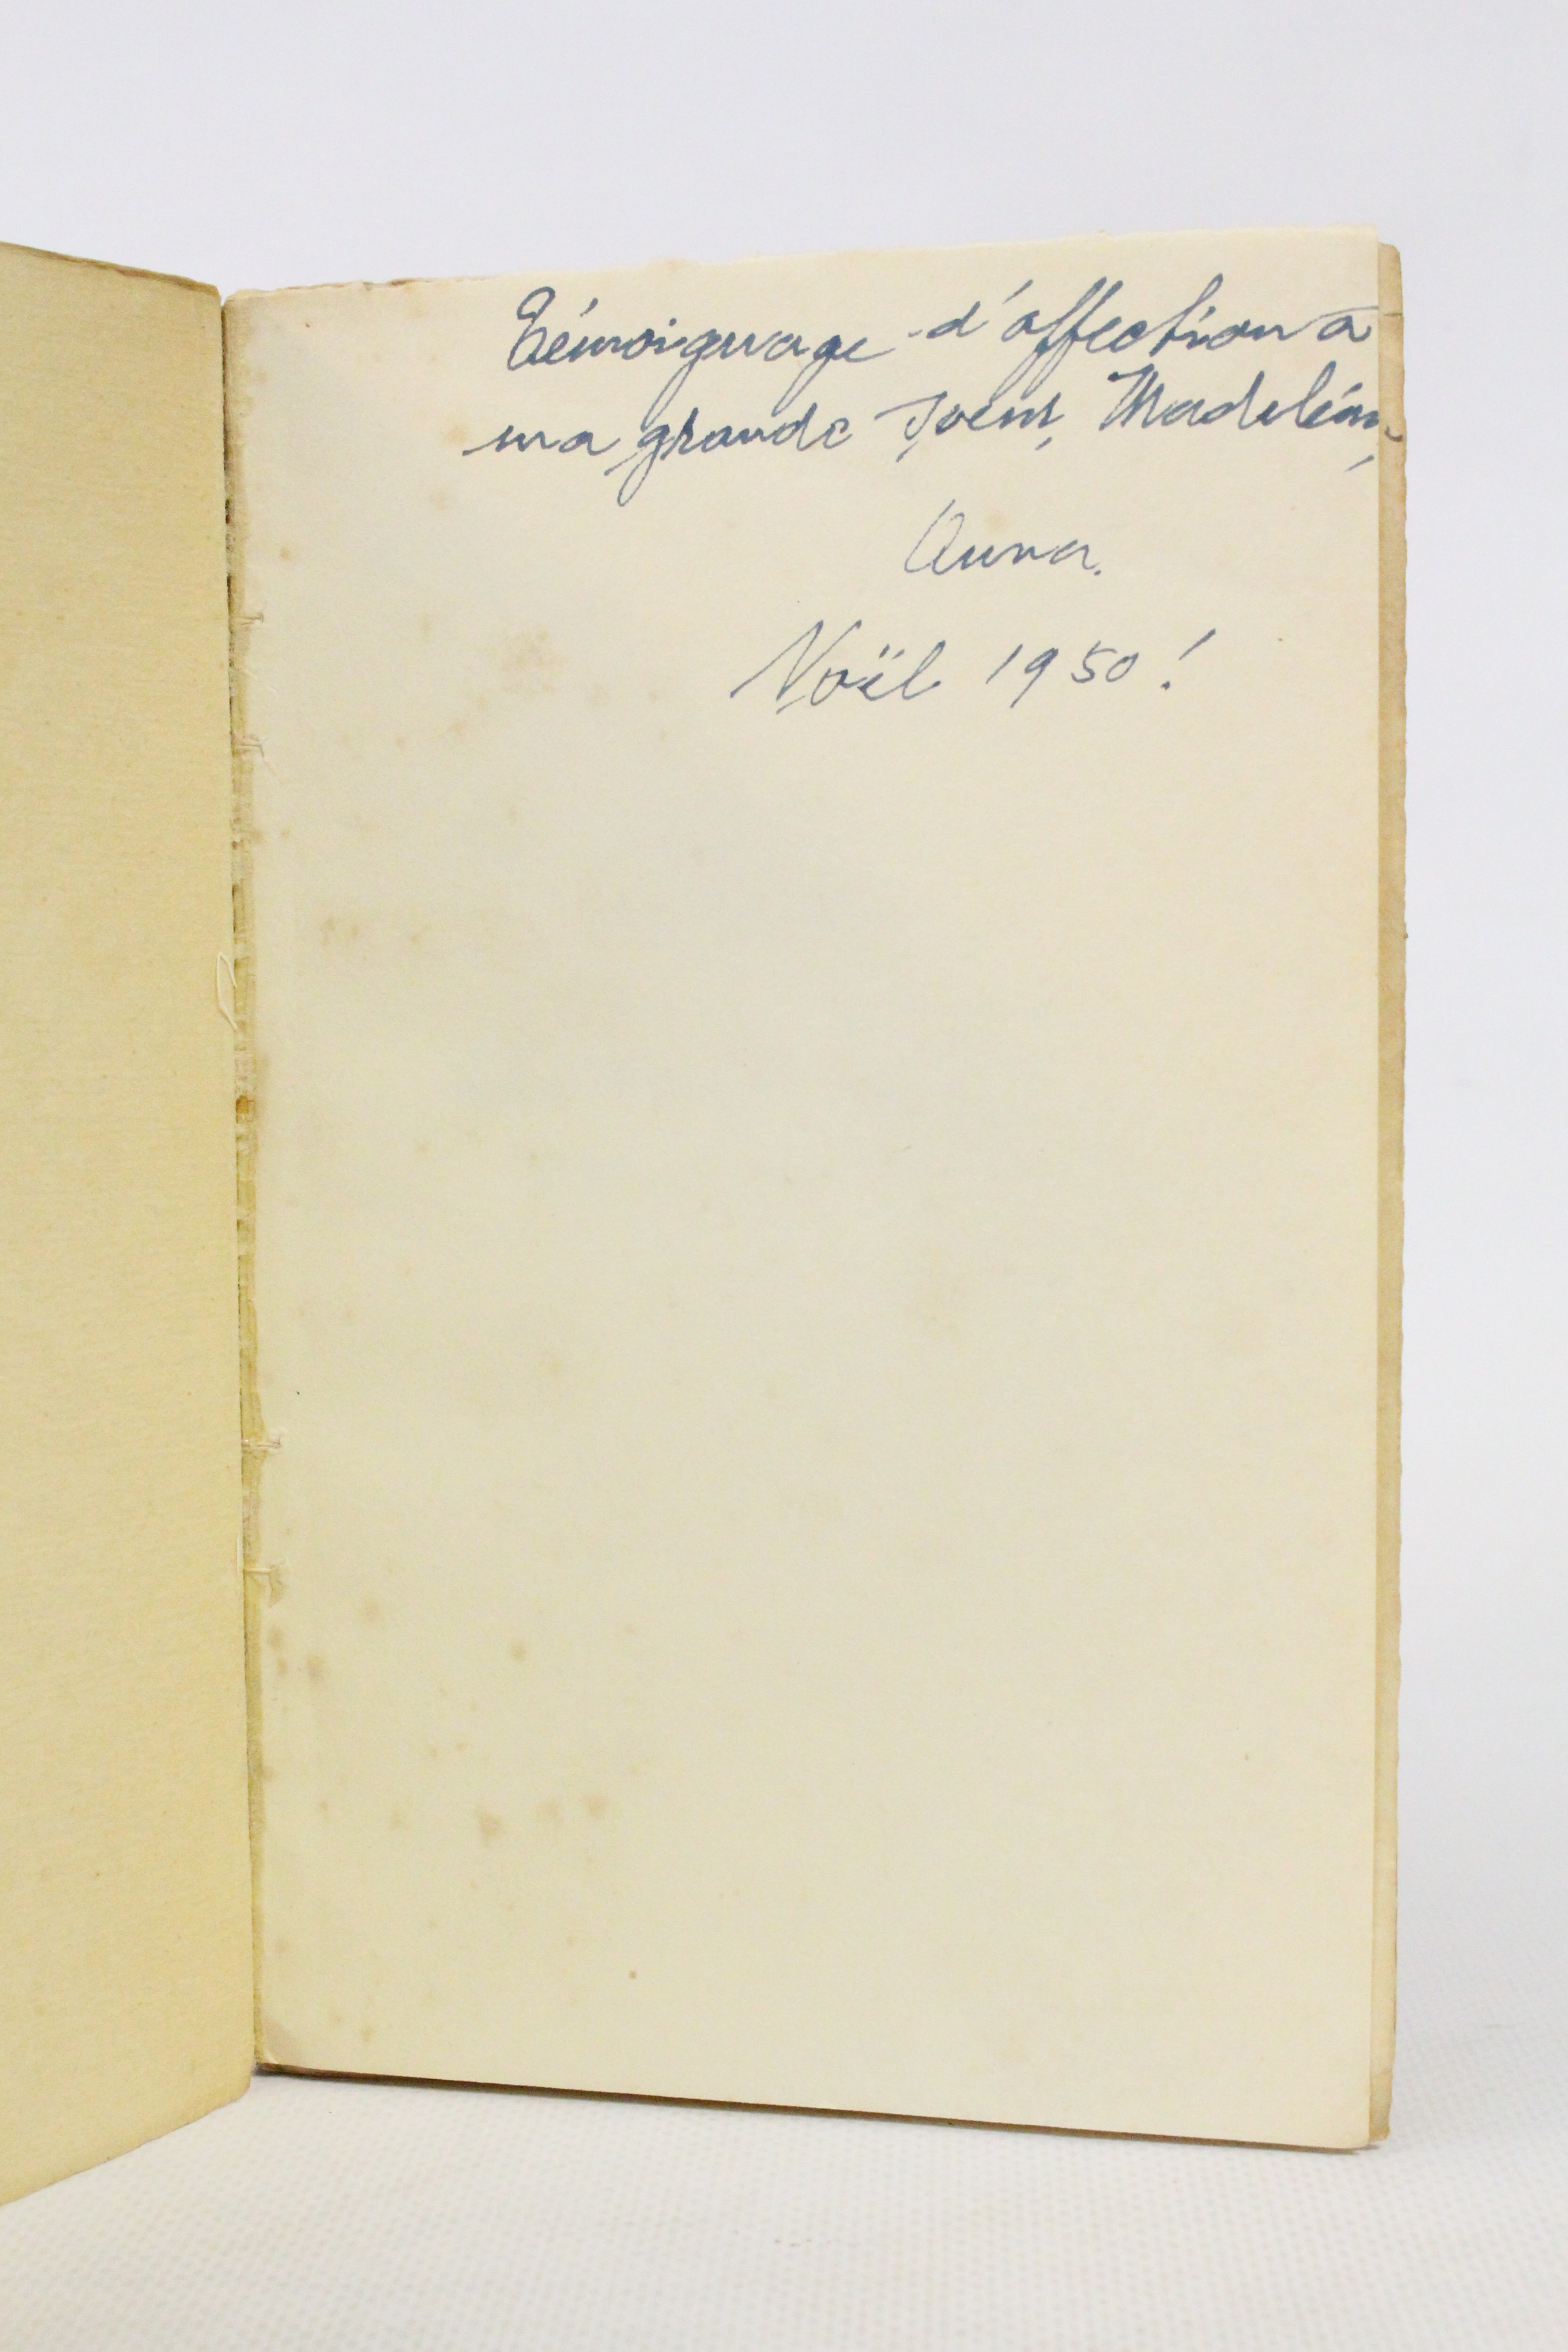 Témoignage d'affection à
ma grande soeur, Madeleine,
Anna.
Noël 1950!